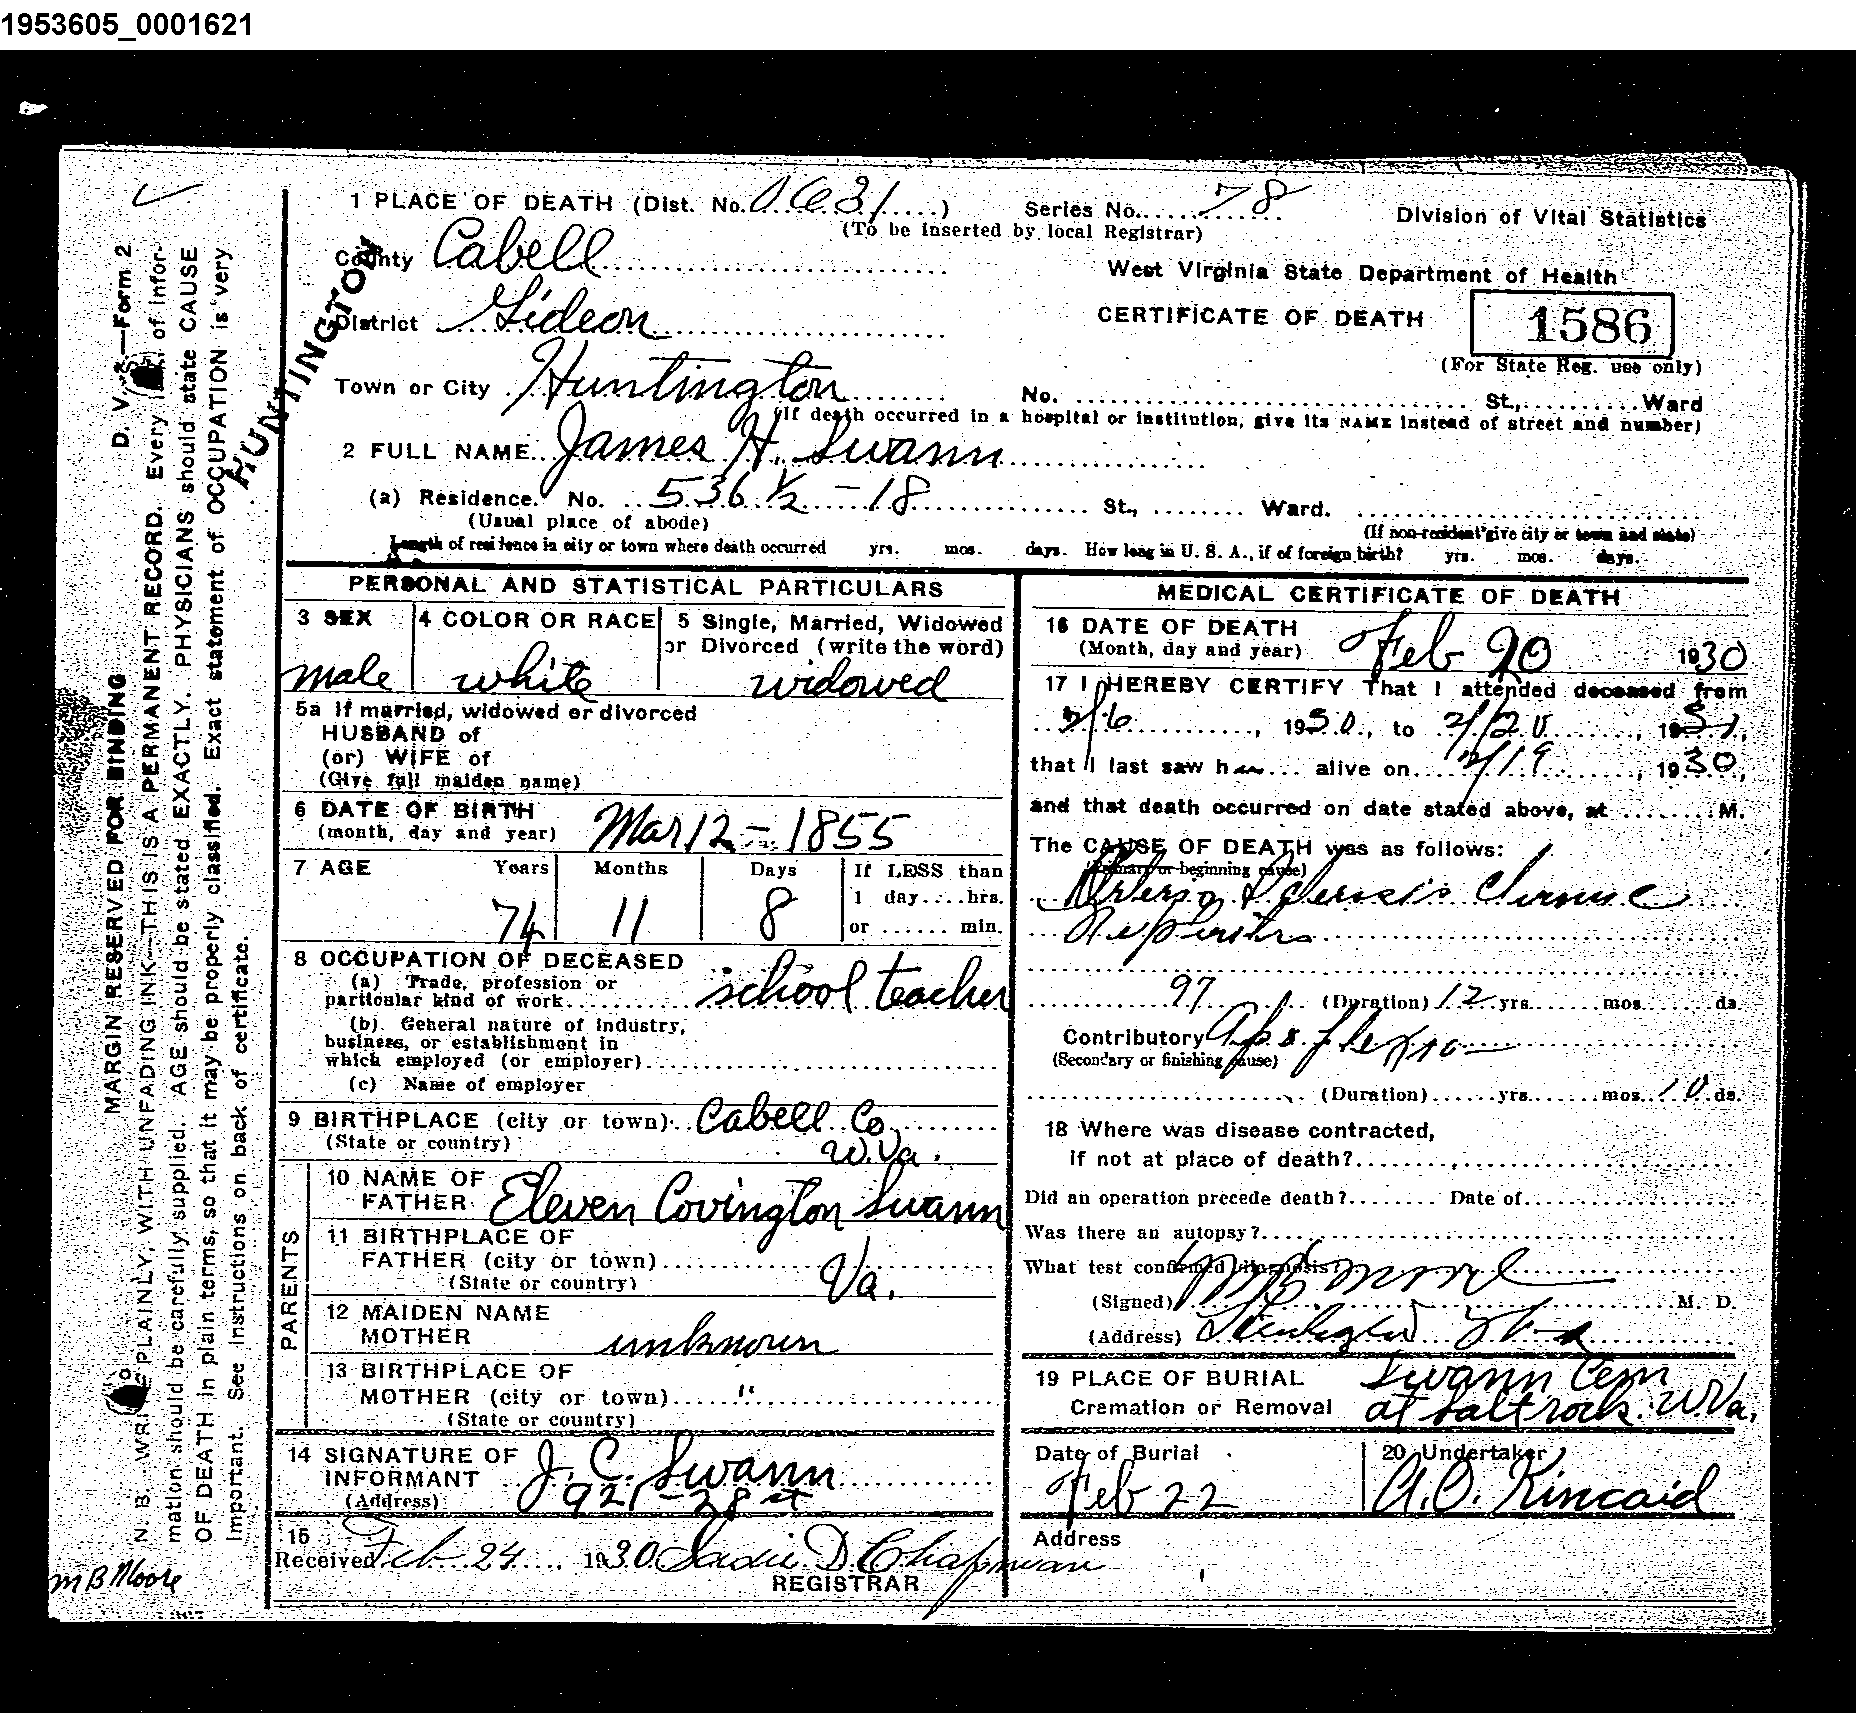 1953605_0001621
1 PLACE OF DEATH (Dist. No. 0631) Series No. 78 Division of Vital Statistics
(To be inserted by local Registrar)
County Cabell West Virginia State Department of Health
District Gideon CERTIFICATE OF DEATH 1586
(For State Reg. use only)
HUNTINGTON
Town or City Huntington No. St., Ward
(If death occurred in a hospital or institution, give its NAME instead of street and number)
2 FULL NAME James H. Swann
(a) Residence. No. 536 1/2 - 18 St., Ward.
(Usual place of abode) (If non-resident give city or town and state)
Length of residence in city or town where death occurred yrs. mos. days. How long in U. S. A., if of foreign birth? yrs. mos. days.
PERSONAL AND STATISTICAL PARTICULARS
3 SEX 4 COLOR OR RACE 5 Single, Married, Widowed
or Divorced (write the word)
male white widowed
5a If married, widowed or divorced
HUSBAND of
(or) WIFE of
(Give full maiden name)
6 DATE OF BIRTH
(month, day and year) Mar 12 - 1855
7 AGE Years Months Days If LESS than
1 day....hrs.
74 11 8 or ...... min.
8 OCCUPATION OF DECEASED
(a) Trade, profession or
particular kind of work school teacher
(b) General nature of industry,
business, or establishment in
which employed (or employer)
(c) Name of employer
9 BIRTHPLACE (city or town) Cabell Co
(State or country) W.Va.
PARENTS
10 NAME OF
FATHER Eleven Covington Swann
11 BIRTHPLACE OF
FATHER (city or town)
(State or country) Va.
12 MAIDEN NAME
MOTHER unknown
13 BIRTHPLACE OF
MOTHER (city or town) "
(State or country)
14 SIGNATURE OF
INFORMANT J. C. Swann
(Address) 921 - 28 st
15
Received Feb 24 1930 Sadie D Chapman
REGISTRAR
MEDICAL CERTIFICATE OF DEATH
16 DATE OF DEATH
(Month, day and year) Feb 20 1930
17 I HEREBY CERTIFY That I attended deceased from
2/6, 1930, to 2/20, 19
that I last saw h alive on 2/19, 1930,
and that death occurred on date stated above, at M.
The CAUSE OF DEATH was as follows:
(Primary or beginning cause)
Arterio Sclerosis Chronic
Nephritis
97 (Duration) 12 yrs. mos. ds.
Contributory Apoplexia
(Secondary or finishing cause)
(Duration) yrs. mos. 10 ds.
18 Where was disease contracted,
if not at place of death?
Did an operation precede death? Date of
Was there an autopsy?
What test confirmed diagnosis?
(Signed) MB Moore M. D.
(Address) Huntington W Va
19 PLACE OF BURIAL Swann Cem
Cremation or Removal at Salt rock. W.Va.
Date of Burial 20 Undertaker
Feb 22 A. O. Kincaid
Address
D. V. S.—Form 2
MARGIN RESERVED FOR BINDING
N. B. WRITE PLAINLY, WITH UNFADING INK—THIS IS A PERMANENT RECORD. Every item of infor-
mation should be carefully supplied. AGE should be stated EXACTLY. PHYSICIANS should state CAUSE
OF DEATH in plain terms, so that it may be properly classified. Exact statement of OCCUPATION is very
important. See instructions on back of certificate.
M B Moore